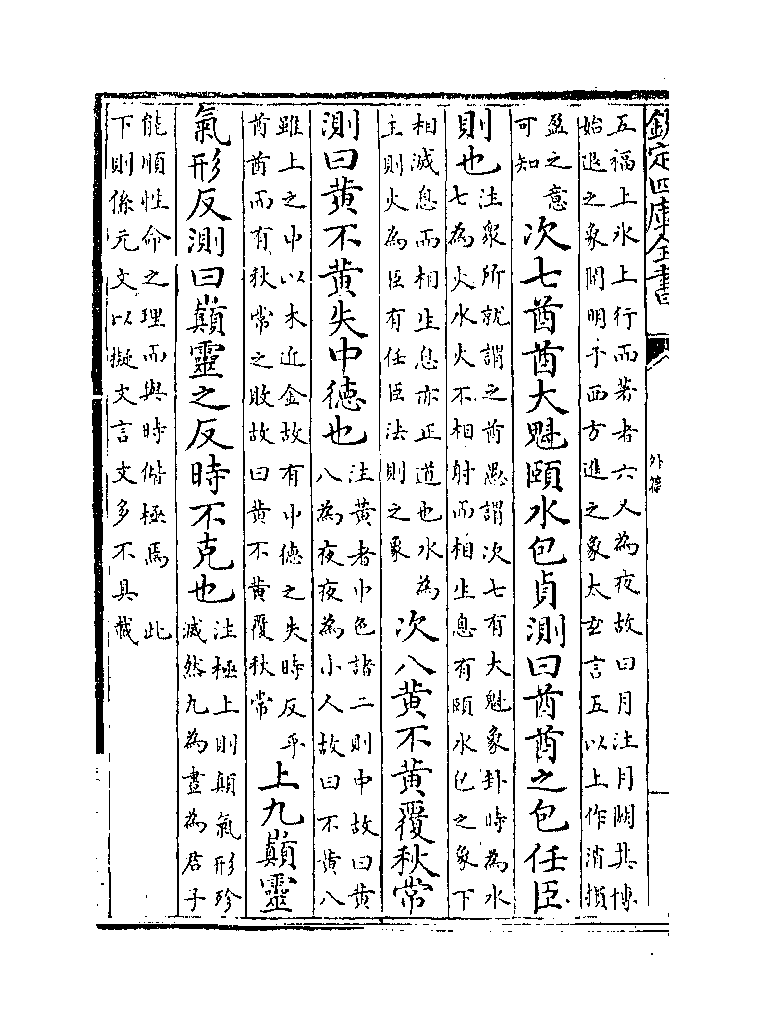 欽定四庫全書
五福上水上行而著者六又為夜故曰月注月闕其博
始退之象開明于西方進之象太玄言五以上作消損
盈之意
可知
次七酋酋大魁頤水包貞測曰酋酋之包任臣
則也
注衆所就謂之酋愚謂次七有大魁象卦時為水
七為火水火不相射而相生息有頤水包之象下
相滅息而相生息亦正道也水為
主則火為臣有任臣法則之象
次八黃不黃覆秋常
測曰黃不黃失中德也
注黃者中色諸二則中故曰黃
八為夜夜為小人故曰不黃八
雖上之中以木近金故有中德之失時反乎
酋酋而有秋常之敗故曰黃不黃覆秋常
上九巔靈
氣形反測曰巔靈之反時不克也
注極上則顛氣形殄
滅然九為盡為君子
能順性命之理而與時偕極焉 此
下則係元文以擬文言文多不具載